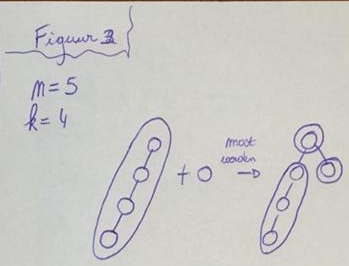 Figuur 3
n=5
k=4
+
moet
worden